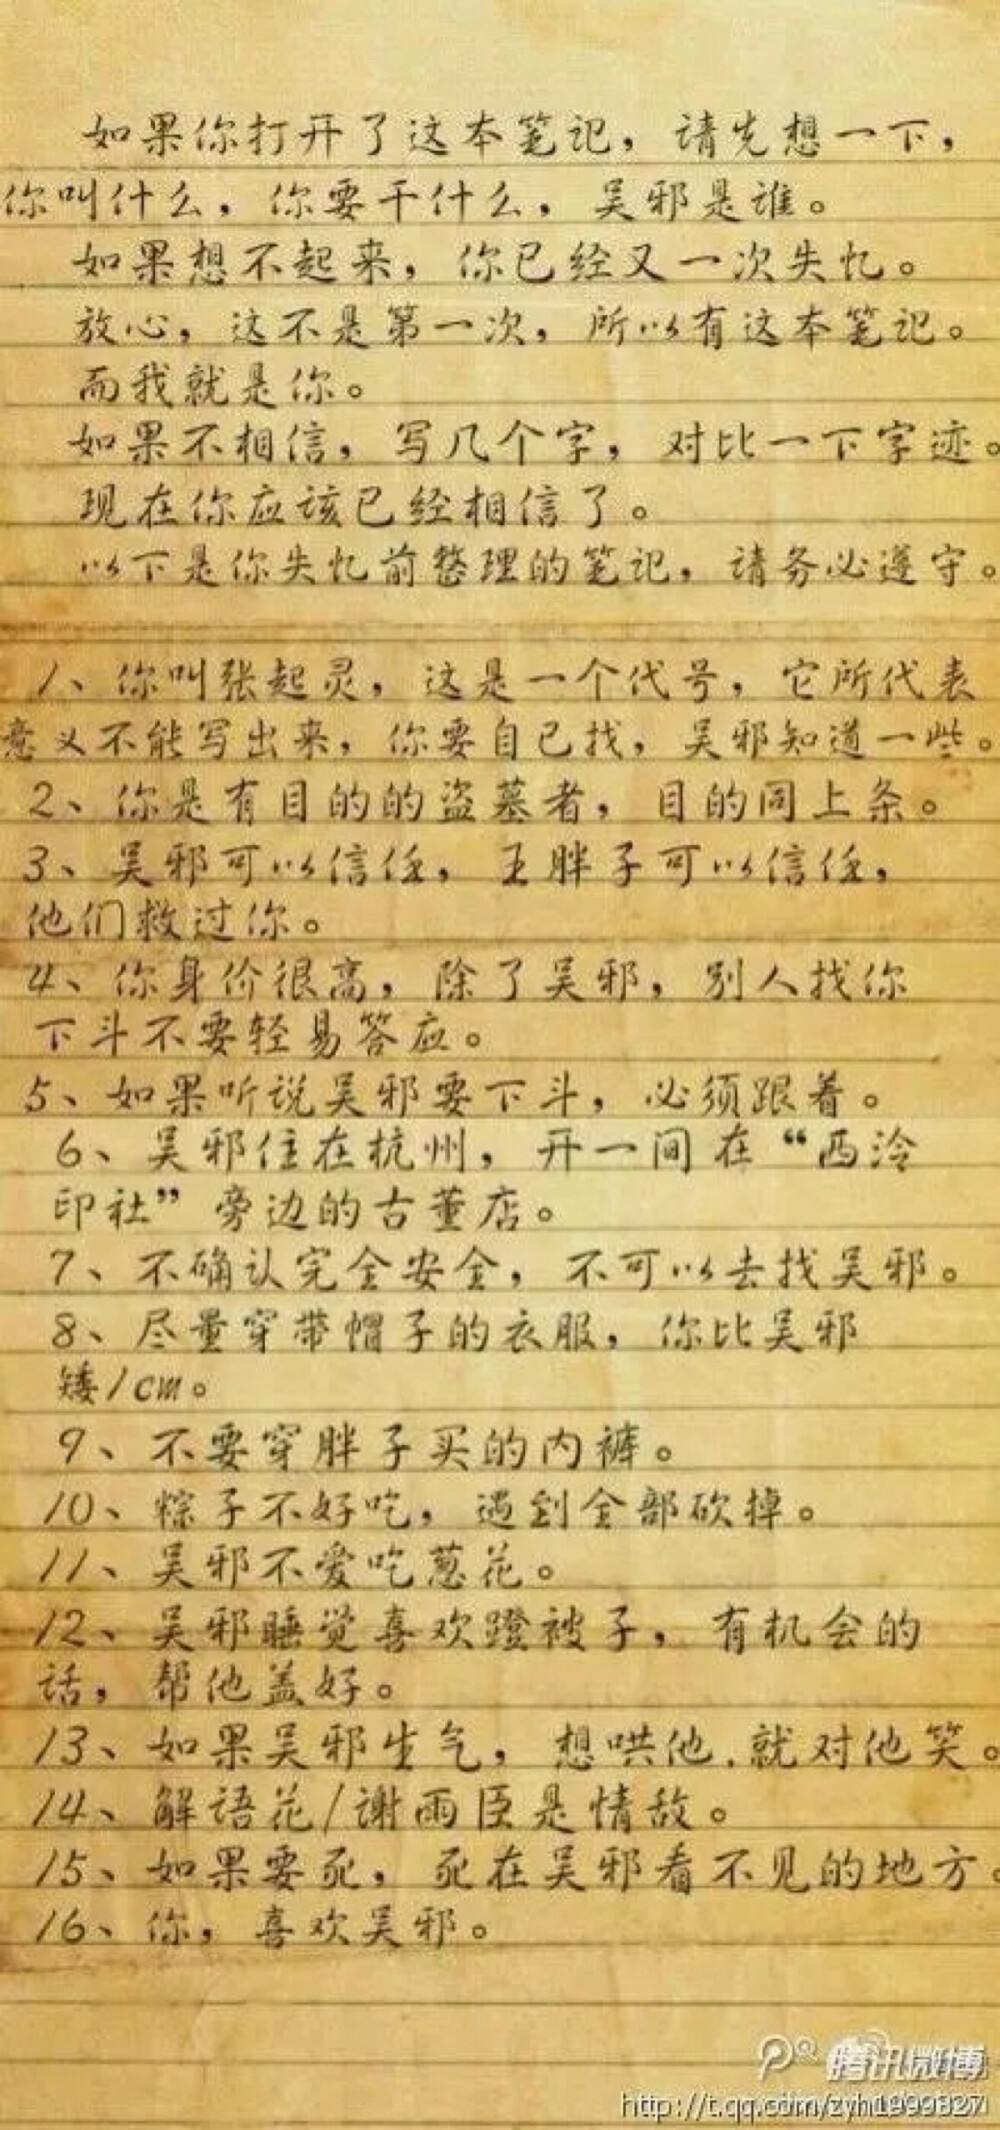 如果你打开了这本笔记，请先想一下，
你叫什么，你要干什么，吴邪是谁。
如果想不起来，你已经又一次失忆。
放心，这不是第一次，所以有这本笔记。
而我就是你。
如果不相信，写几个字，对比一下字迹。
现在你应该已经相信了。
以下是你失忆前整理的笔记，请务必遵守。
1、你叫张起灵，这是一个代号，它所代表
意义不能写出来，你要自己找，吴邪知道一些。
2、你是有目的的盗墓者，目的同上条。
3、吴邪可以信任，王胖子可以信任，
他们救过你。
4、你身价很高，除了吴邪，别人找你
下斗不要轻易答应。
5、如果听说吴邪要下斗，必须跟着。
6、吴邪住在杭州，开一间在“西泠
印社”旁边的古董店。
7、不确认完全安全，不可以去找吴邪。
8、尽量穿带帽子的衣服，你比吴邪
矮1cm。
9、不要穿胖子买的内裤。
10、粽子不好吃，遇到全部砍掉。
11、吴邪不爱吃葱花。
12、吴邪睡觉喜欢蹬被子，有机会的
话，帮他盖好。
13、如果吴邪生气，想哄他，就对他笑。
14、解语花/谢雨臣是情敌。
15、如果要死，死在吴邪看不见的地方。
16、你，喜欢吴邪。
腾讯微博
http://t.qq.com/zyh1999827